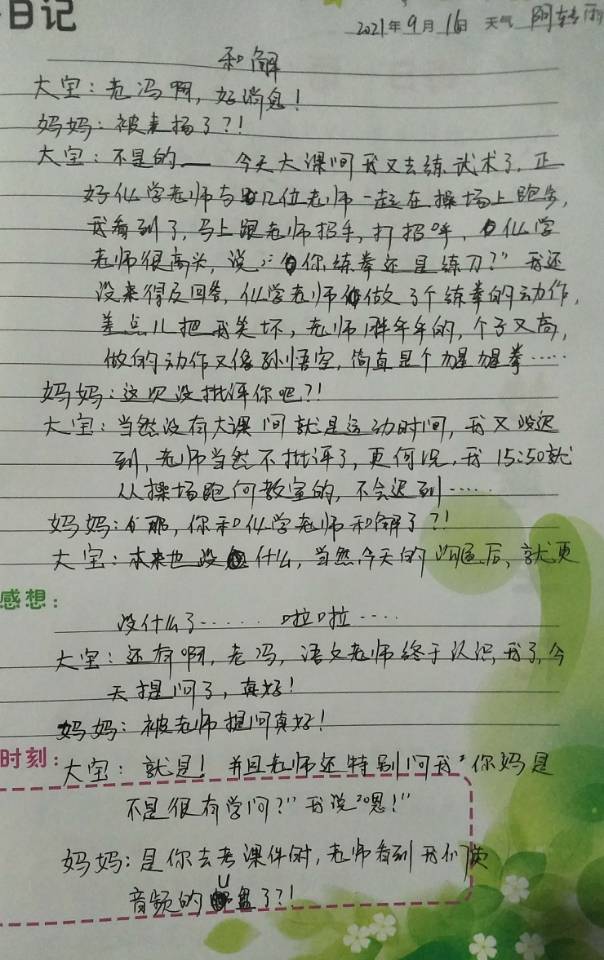 日记
2021年9月16日 天气 阴转雨
和解
大宝：老冯啊，好消息！
妈妈：被表扬了？！
大宝：不是的—— 今天大课间我又去练武术了，正
好仫学老师与几位老师一起在操场上跑步，
我看到了，马上跟老师招手，打招呼，仫学
老师很高兴，说："你练拳还是练刀？"我还
没来得及回答，仫学老师做了个练拳的动作，
差点儿把我笑坏，老师胖年年的，个子又高，
做的动作又像孙悟空，简直是个猩猩拳……
妈妈：这次没批评你吧？！
大宝：当然没有大课间就是运动时间，我又没迟
到，老师当然不批评了，更何况，我15:50就
从操场跑向教室的，不会迟到……
妈妈：那，你和仫学老师和解了？！
大宝：本来也没什么，当然今天的沟通后，就更
感想：
没什么了…… 啦啦……
大宝：还有啊，老冯，语文老师终于认识我了，今
天提问了，真好！
妈妈：被老师提问真好！
时刻：
大宝：就是！并且老师还特别问我"你妈是
不是很有学问？"我说"嗯！"
妈妈：是你去考课件时，老师看到我们
音频的U盘了？！